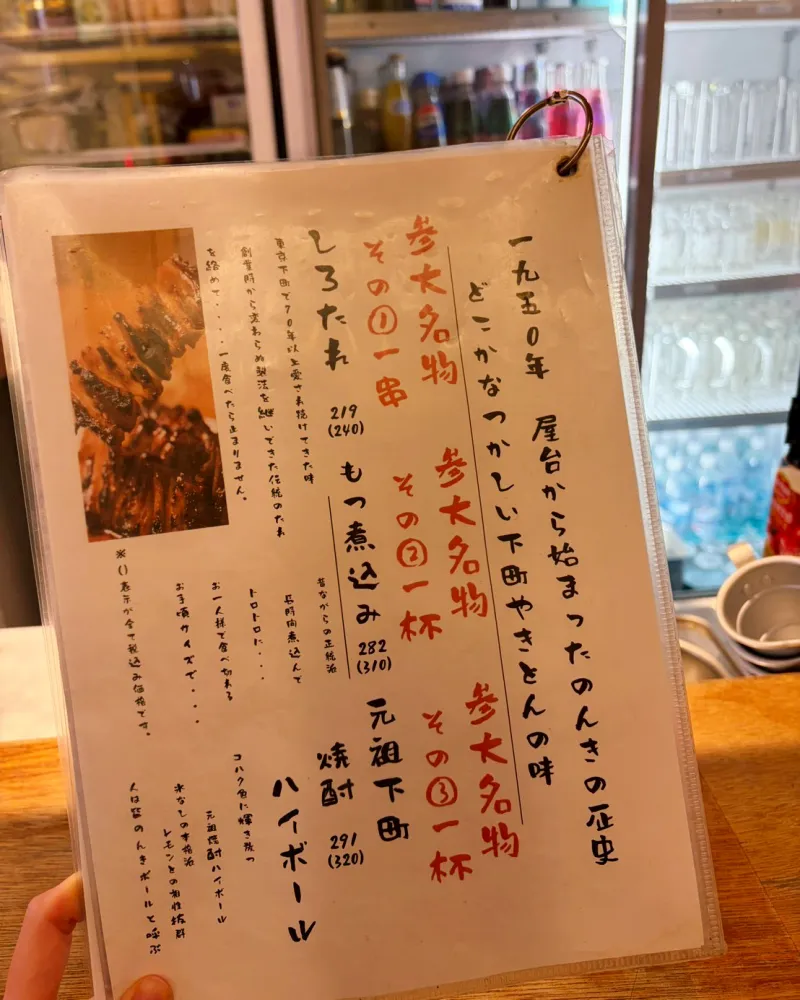 一九五〇年 屋台から始まったのんきの歴史
どこかなつかしい下町やきとんの味
参大名物
その①一串
しろたれ
219
(240)
東京下町で70年以上愛され続けてきた味
創業時から変わらぬ製法を継いできた伝統のたれ
を絡めて・・・一度食べたら止まりません。
参大名物
その②一杯
もつ煮込み
282
(310)
昔ながらの正統派
長時間煮込んで
トロトロに・・・
お一人様で食べ切れる
お手頃サイズで・・・
※()表示が全て税込み価格です。
参大名物
その③一杯
元祖下町
焼酎
ハイボール
291
(320)
コハク色に輝き放つ
元祖焼酎ハイボール
氷なしの本格派
レモンとの相性抜群
人は皆のんきボールと呼ぶ